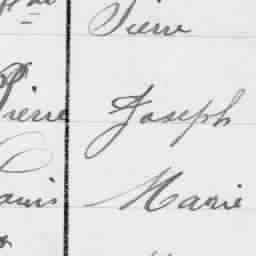 Pierre
Pierre Joseph
Louis Marie